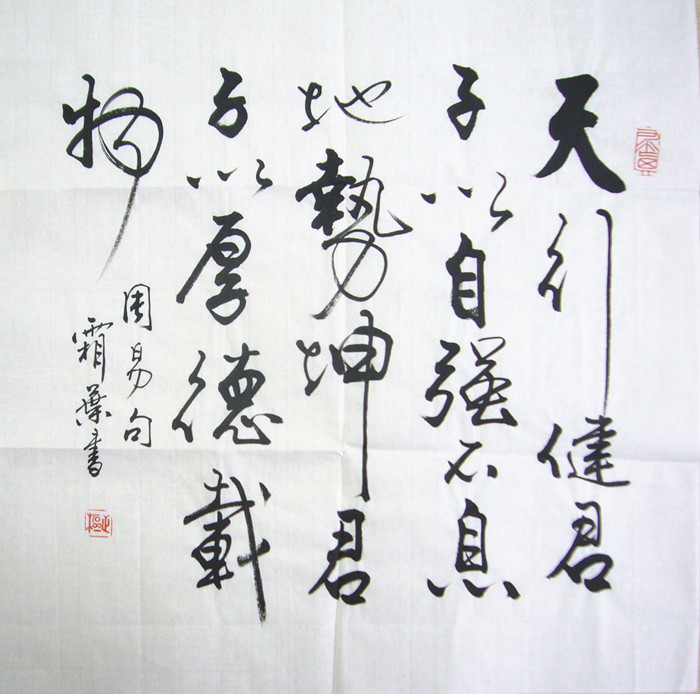 天行健君
子以自強不息
地勢坤君
子以厚德載
物
周易句
霜葉書